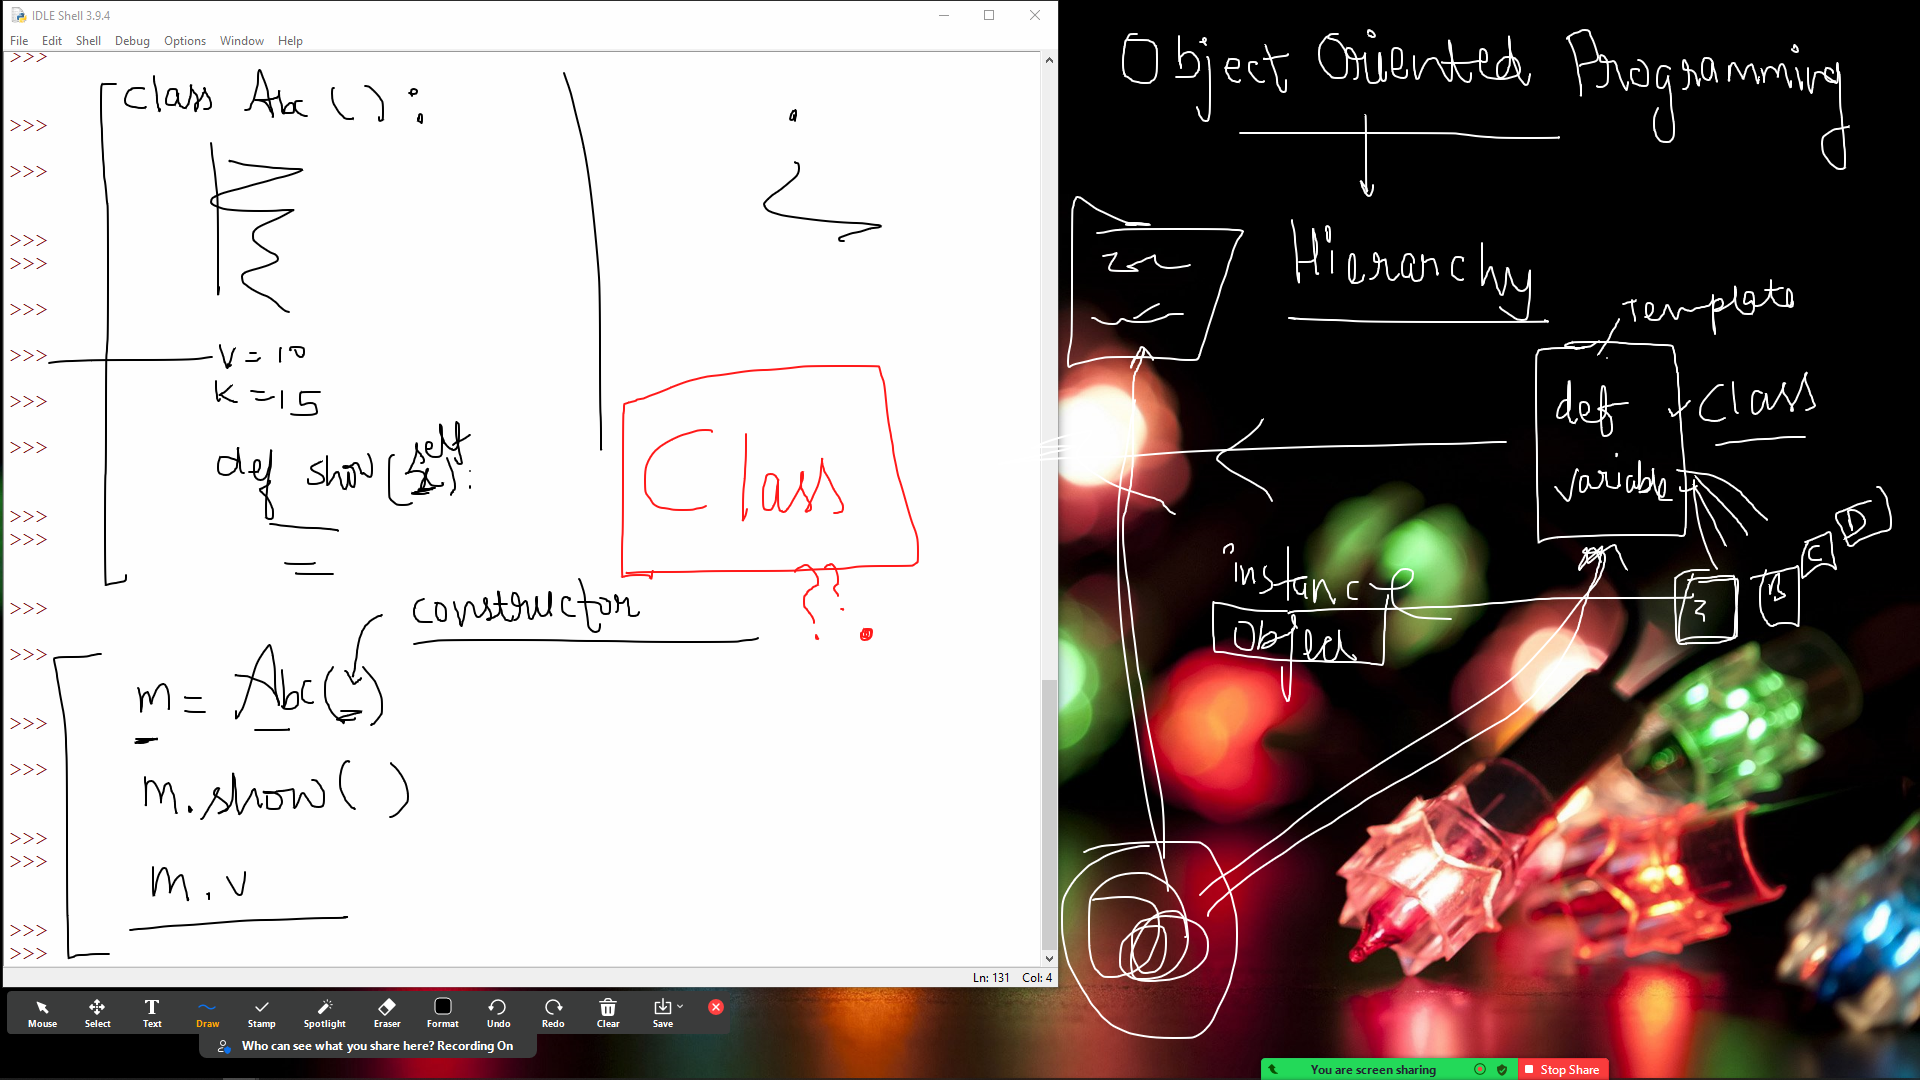 IDLE Shell 3.9.4
File Edit Shell Debug Options Window Help
>>>
>>>
>>>
>>>
>>>
>>>
>>>
>>>
>>>
>>>
>>>
>>>
>>>
>>>
>>>
>>>
>>>
>>>
>>>
class Abc ( ) :
v = 10
k = 15
def show(self):
constructor
m = Abc( )
m.show( )
m.v
Class
??
Ln: 131 Col: 4
Object Oriented Programming
Hierarchy
Template
def
variable
Class
instance
Object
B
C
D
Mouse Select Text Draw Stamp Spotlight Eraser Format Undo Redo Clear Save
Who can see what you share here? Recording On
You are screen sharing Stop Share